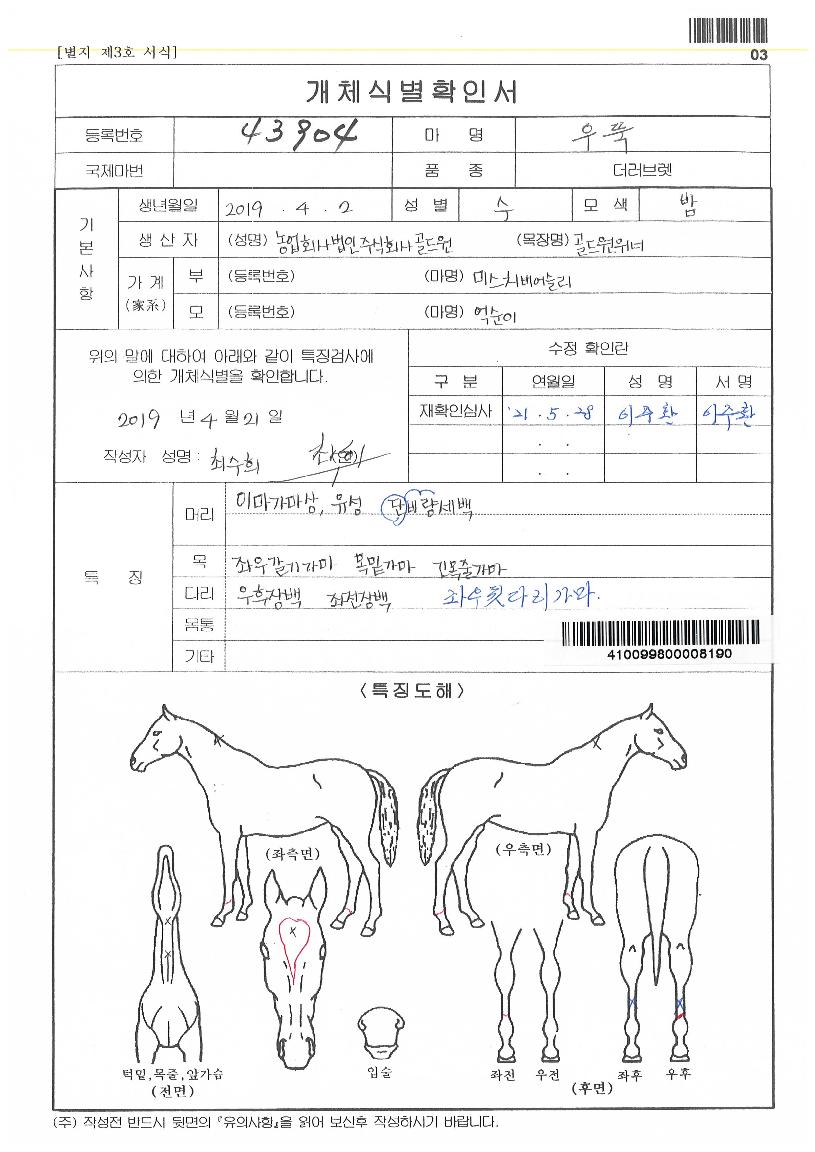 [별지 제3호 서식]
03
개체식별확인서
등록번호 43904 마 명 우뚝
국제마번 품 종 더러브렛
기본사항
생년월일 2019 . 4 . 2 성 별 수 모 색 밤
생 산 자 (성명) 농업회사법인주식회사골드원 (목장명) 골드원위너
가 계 (家系)
부 (등록번호) (마명) 미스치버어슬리
모 (등록번호) (마명) 억순이
위의 말에 대하여 아래와 같이 특징검사에
의한 개체식별을 확인합니다.
2019 년 4 월 21 일
작성자 성명 : 최수희
수정 확인란
구 분 연월일 성 명 서 명
재확인심사 '21 . 5 . 28 이주환 이주환
. .
. .
특 징
머리 이마가마상, 유성 단비량세백
목 좌우갈기가마 목밑가마 긴목줄가마
다리 우후장백 좌전장백 좌우뒷다리가마.
몸통
기타
410099800008190
<특징도해>
(좌측면) (우측면)
턱밑,목줄,앞가슴
(전면)
입술
좌전 우전 좌후 우후
(후면)
(주) 작성전 반드시 뒷면의 『유의사항』을 읽어 보신후 작성하시기 바랍니다.